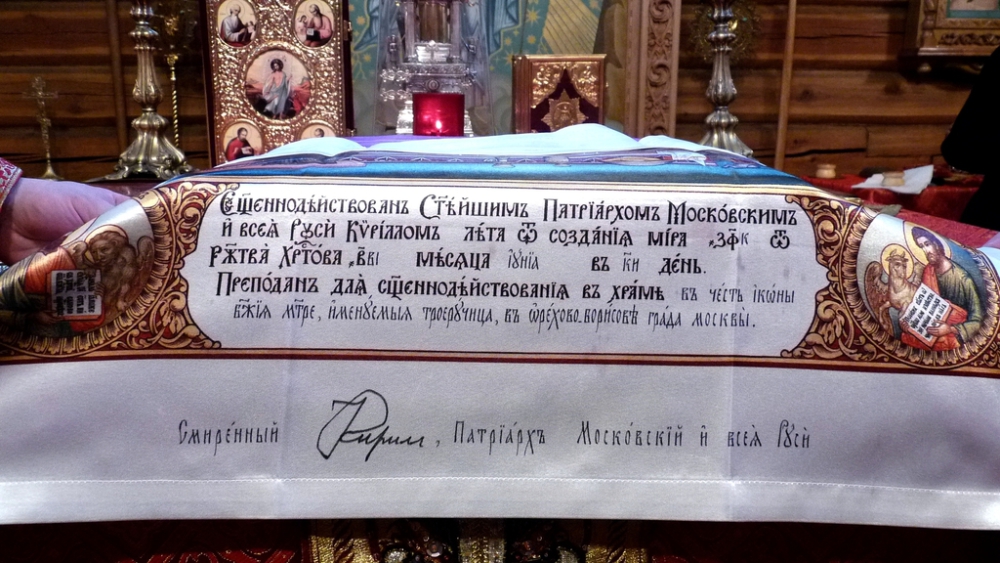 Сщ҃еннодѣ́йствованъ Ст҃ѣ́йшимъ Патрїа́рхомъ Моско́вскимъ
и҆ всеѧ̀ Рꙋсѝ Кѷрі́лломъ лѣ́та ѿ созда́нїѧ мі́ра ҂зф҃к ѿ
рж҃тва̀ Хрⷭ҇то́ва ҂в҃ві мѣ́сѧца і҆ꙋ́нїѧ въ к҃и де́нь.
Препо́данъ для̀ сщ҃еннодѣ́йствованїѧ въ хра́мѣ въ че́сть і҆ко́ны
бж҃їѧ мт҃ре, и҆менꙋ́емыѧ трoерꙋ́чица, въ ѡ҆рѣ́хово-бори́совѣ гра́да москвы̀.
Смире́нный Кирилл, Патрїа́рхъ Моско́вскїй и҆ всеѧ̀ Рꙋсѝ